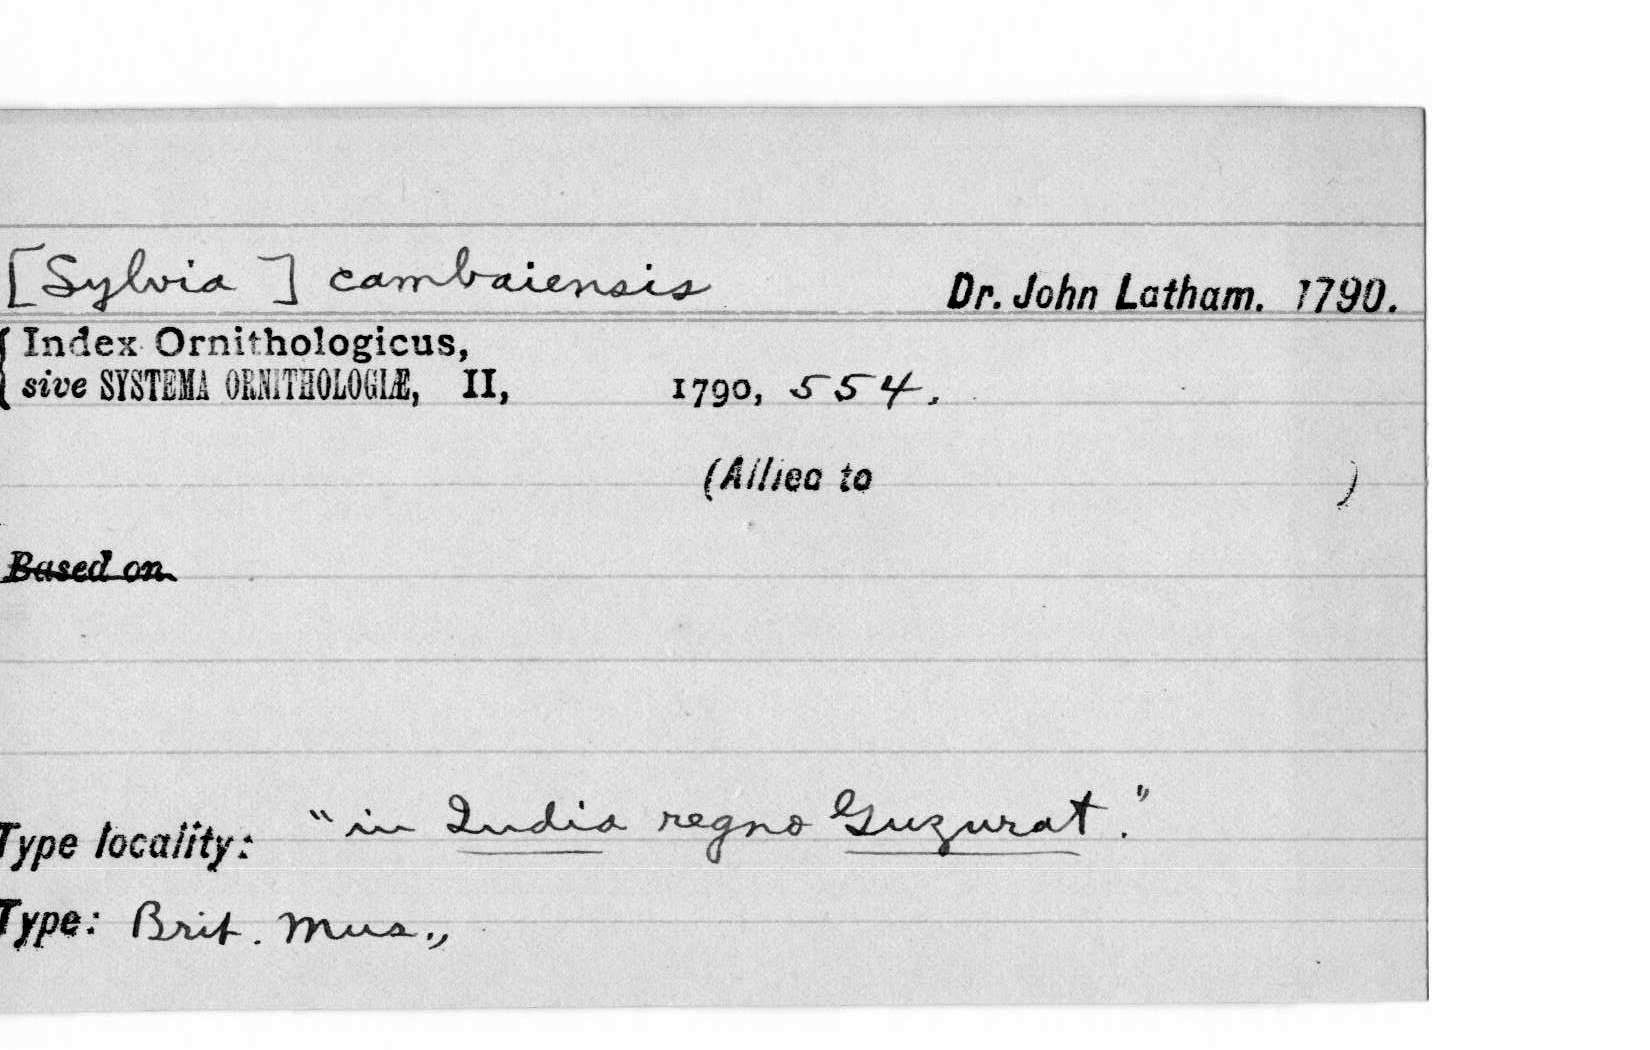 [Sylvia] cambaiensis Dr. John Latham. 1790.
Index Ornithologicus,
sive SYSTEMA ORNITHOLOGIÆ, II, 1790, 554.
(Allied to )
Based on
Type locality: "in India regno Guzurat."
Type: Brit. Mus.,